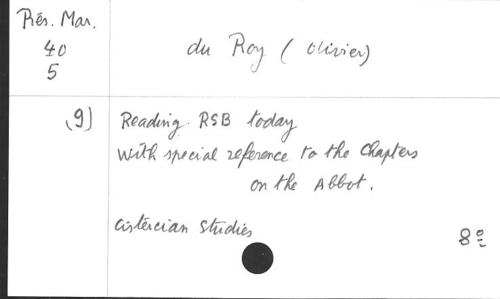 Rés. Mar.
40
5
du Roy (Olivier)
(9)
Reading RSB today
with special reference to the Chapters
on the Abbot.
Cistercian Studies
8º